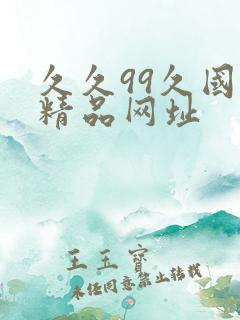 久久99久國
精品网址
王玉寶
未经同意禁止转载